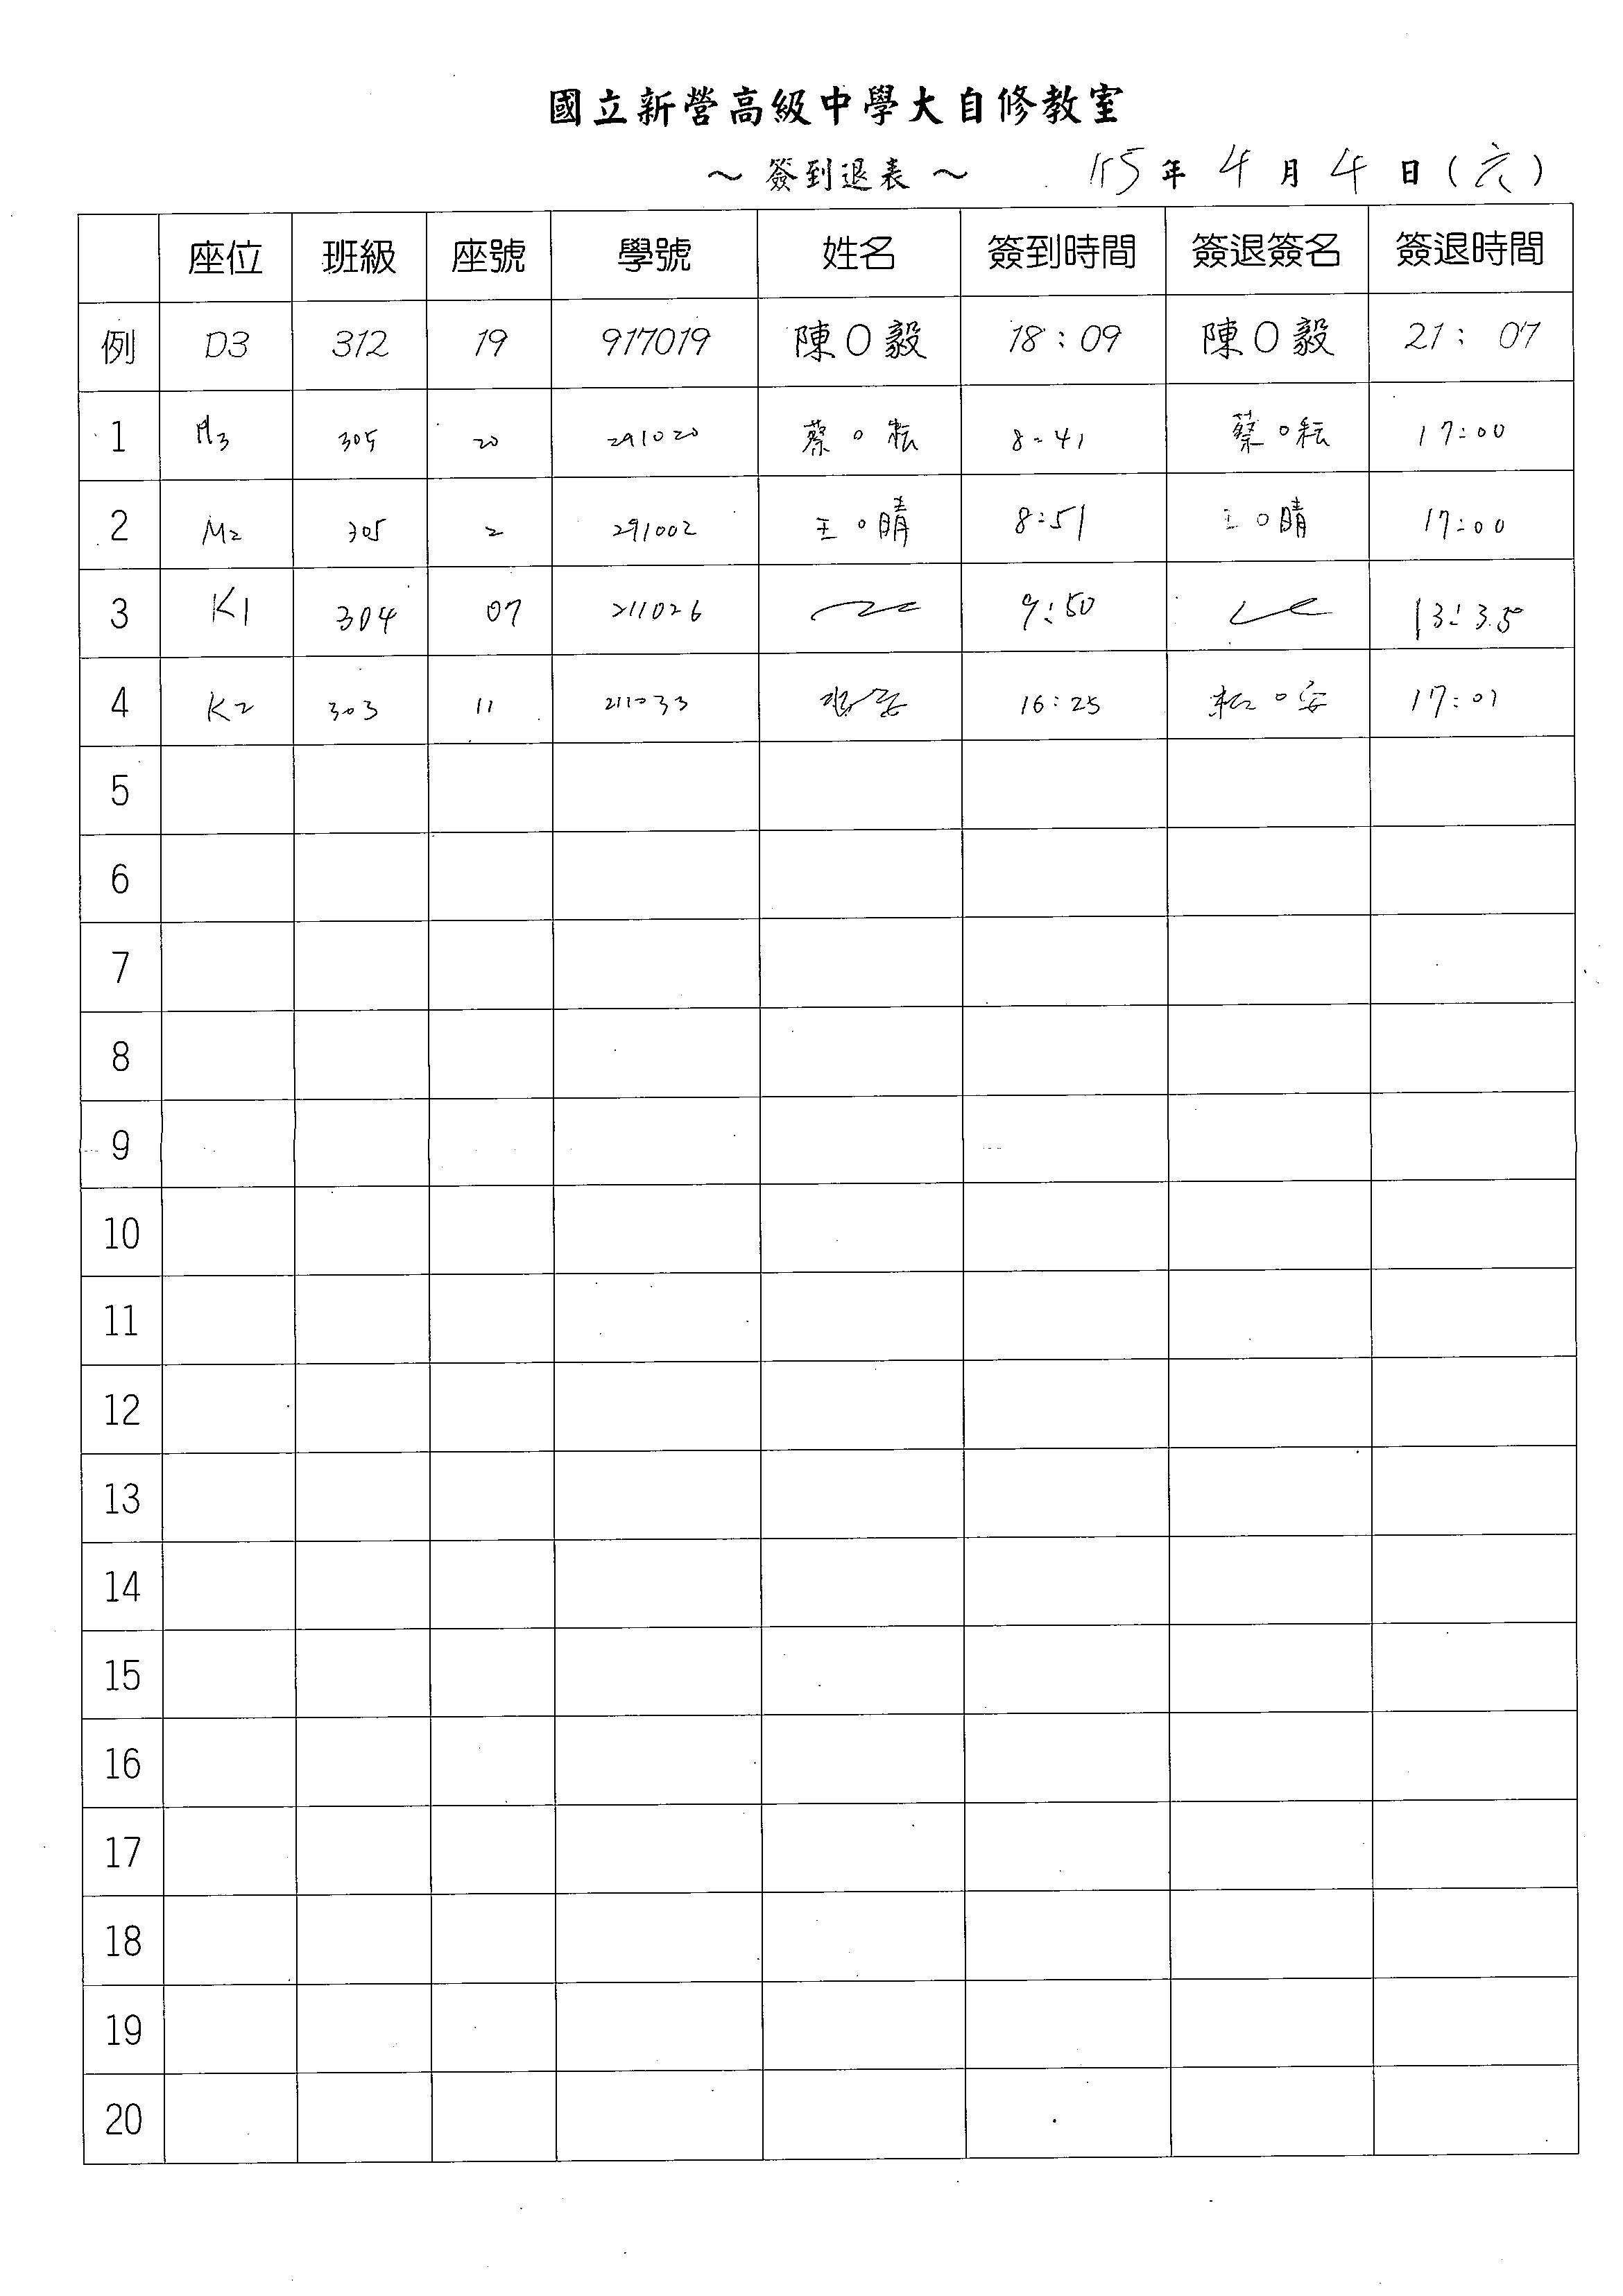 國立新營高級中學大自修教室
～ 簽到退表 ～ 115 年 4 月 4 日 (六)
座位 班級 座號 學號 姓名 簽到時間 簽退簽名 簽退時間
例 D3 312 19 917019 陳O毅 18:09 陳O毅 21:07
1 M3 305 20 291020 蔡O耘 8:41 蔡O耘 17:00
2 M2 305 2 291002 王O晴 8:51 王O晴 17:00
3 K1 304 07 211026 9:50 13:35
4 K2 303 11 211033 16:25 17:01
5
6
7
8
9
10
11
12
13
14
15
16
17
18
19
20